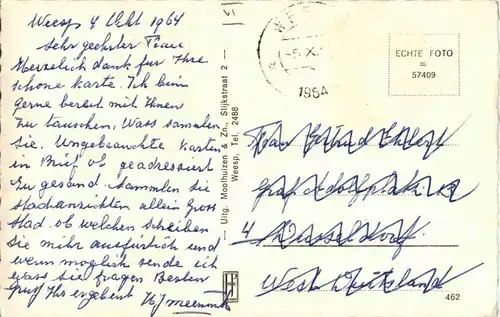 Weesp 4 Okt 1964
Sehr geehrter Frau
Herzelich dank fur Ihre
schone karte. Ich binn
gerne bereit mit Ihnen
zu tauschen, Wass sammlen
sie. Ungebrauchte Karten
in Brief ob geadressiert
zu gesand. Sammlen sie
stadtansichten allein Gross
stad. ob welchen schreiben
Sie mihr ausfurlich und
wenn moglich sende ich
wass sie fragen Besten
Gruss Ihr ergebent HJ
VI
WEESP
-5.X.
1964
Uitg. Moolhuizen & Zn., Slijkstraat 2 —
Weesp, Tel. 2488
ECHTE FOTO
57409
Frau Gertrud
Graf Adolfplatz 12
4 Düsseldorf.
West Duitsland
462